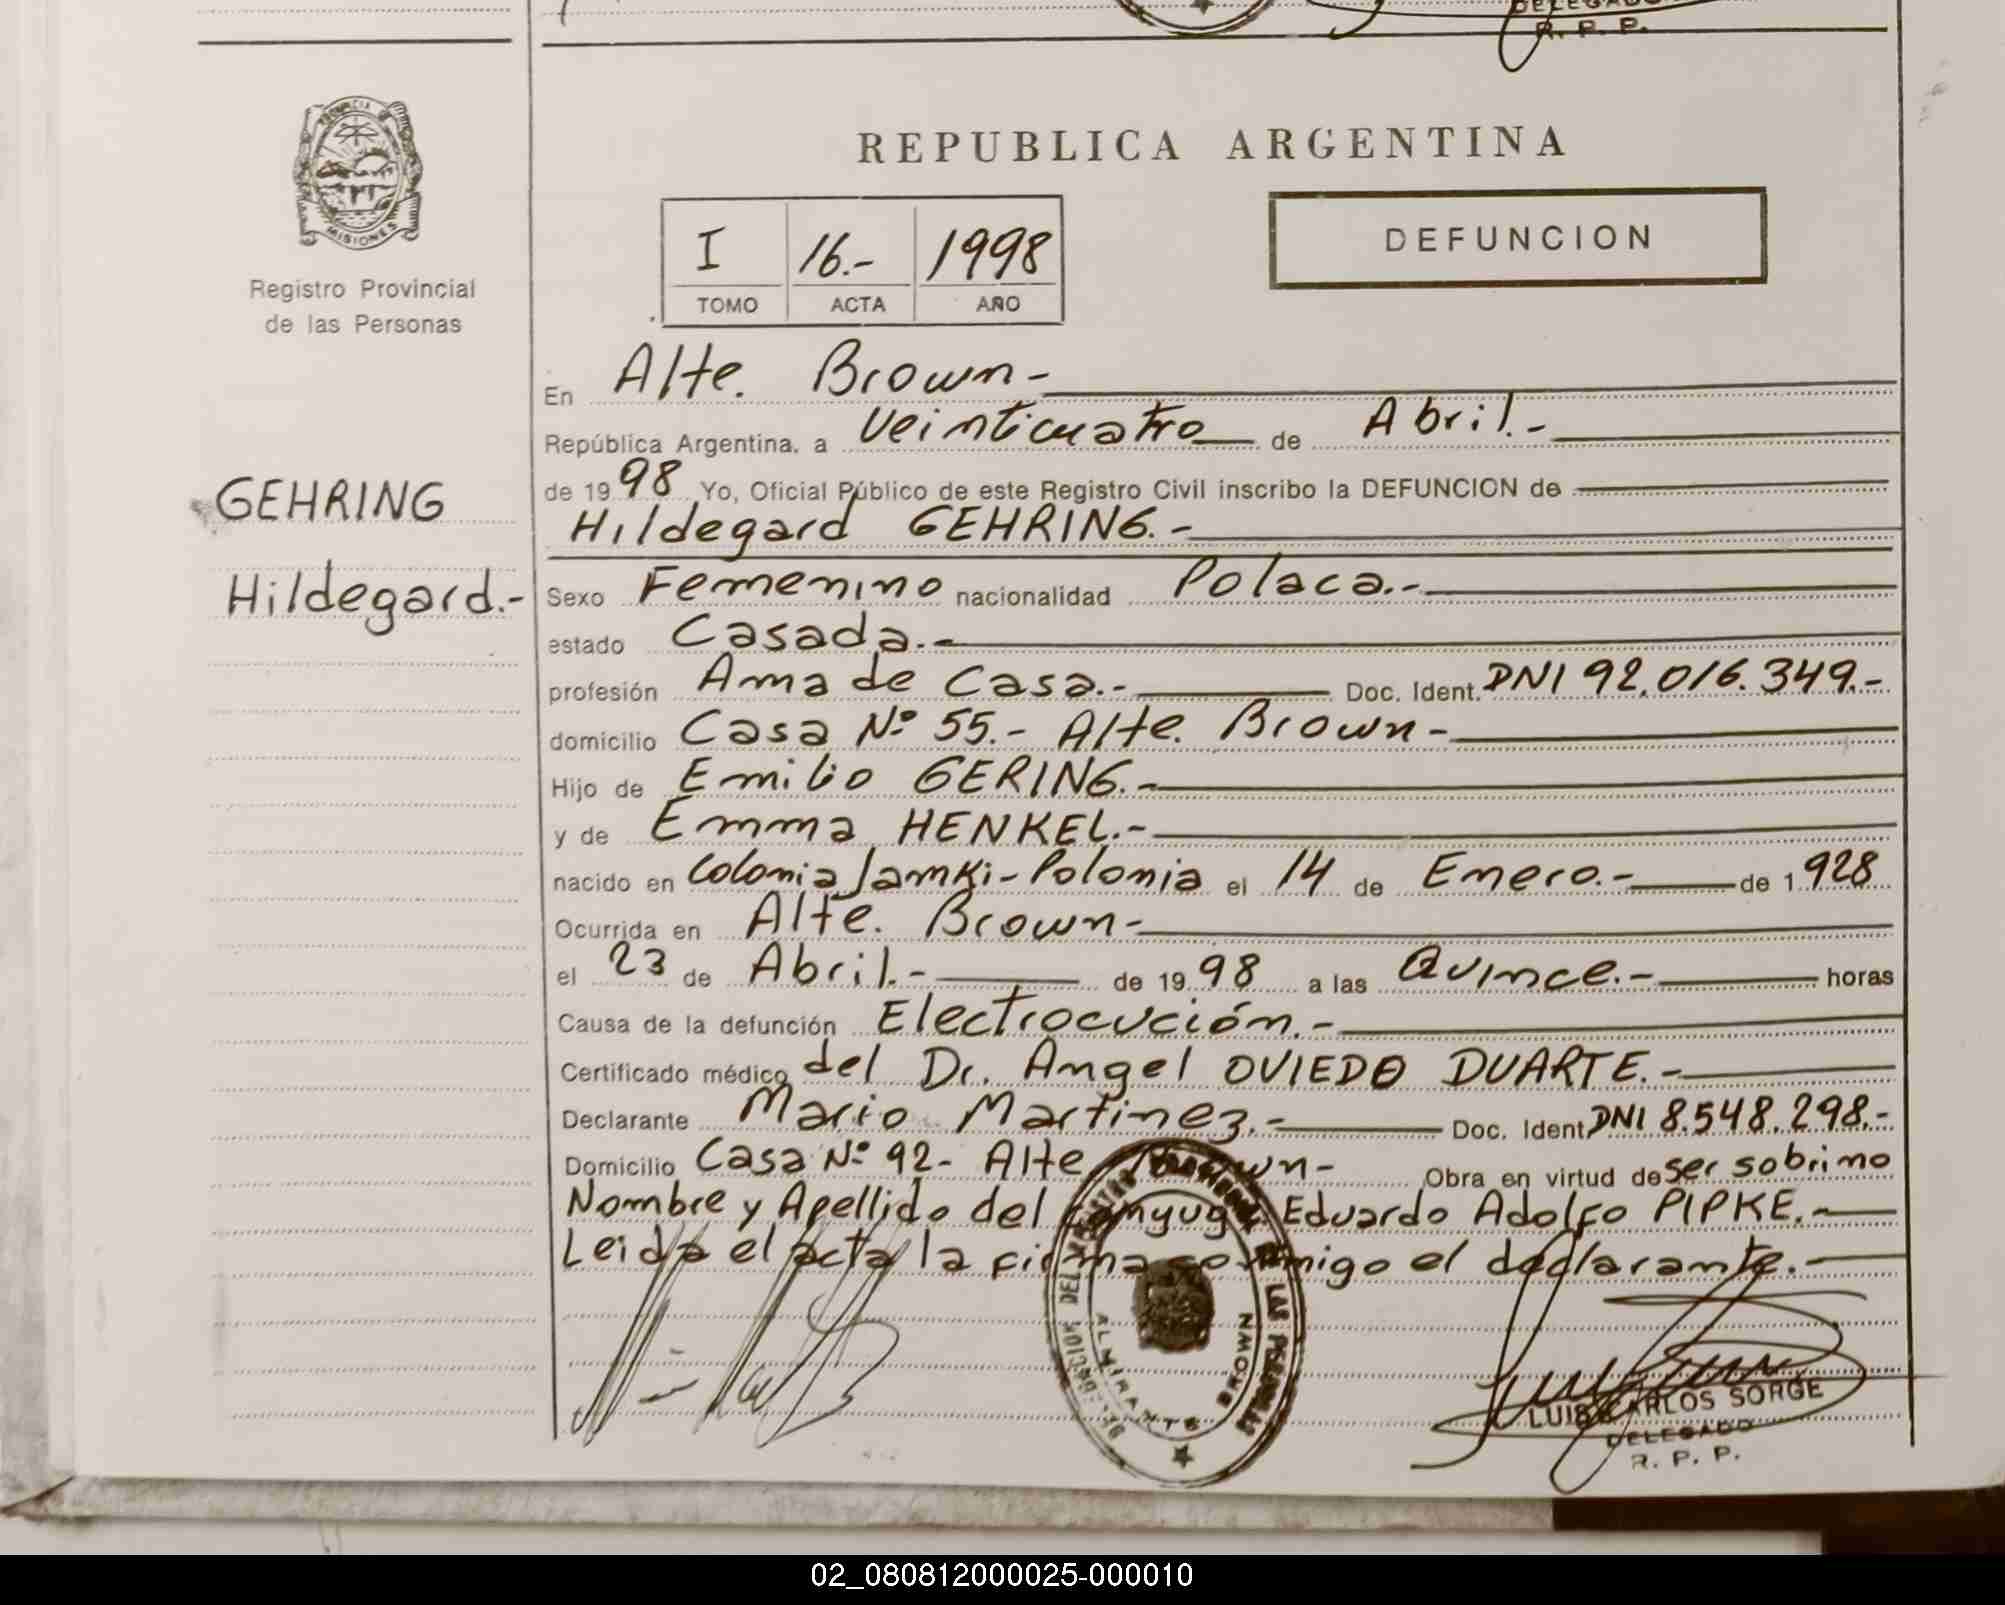 DELEGADO
R. P. P.
PROVINCIA DE
MISIONES
Registro Provincial
de las Personas
REPUBLICA ARGENTINA
I 16.- 1998
TOMO ACTA AÑO
DEFUNCION
GEHRING
Hildegard.-
En Alte. Brown-
República Argentina, a Veinticuatro de Abril.-
de 1998 Yo, Oficial Público de este Registro Civil inscribo la DEFUNCION de
Hildegard GEHRING.-
Sexo Femenino nacionalidad Polaca.-
estado Casada.-
profesión Ama de Casa.- Doc. Ident. DNI 92.016.349.-
domicilio Casa Nº 55.- Alte. Brown-
Hijo de Emilio GERING.-
y de Emma HENKEL.-
nacido en Colonia Jamki-Polonia el 14 de Enero.- de 1928
Ocurrida en Alte. Brown-
el 23 de Abril.- de 1998 a las Quince.- horas
Causa de la defunción Electrocución.-
Certificado médico del Dr. Angel OVIEDO DUARTE.-
Declarante Mario Martinez.- Doc. Ident. DNI 8.548.298.-
Domicilio Casa Nº 92- Alte Brown- Obra en virtud de ser sobrino
Nombre y Apellido del Conyuge Eduardo Adolfo PIPKE.-
Leida el acta la firma conmigo el declarante.-
ALMIRANTE BROWN
LUIS CARLOS SORGE
DELEGADO
R. P. P.
02_080812000025-000010